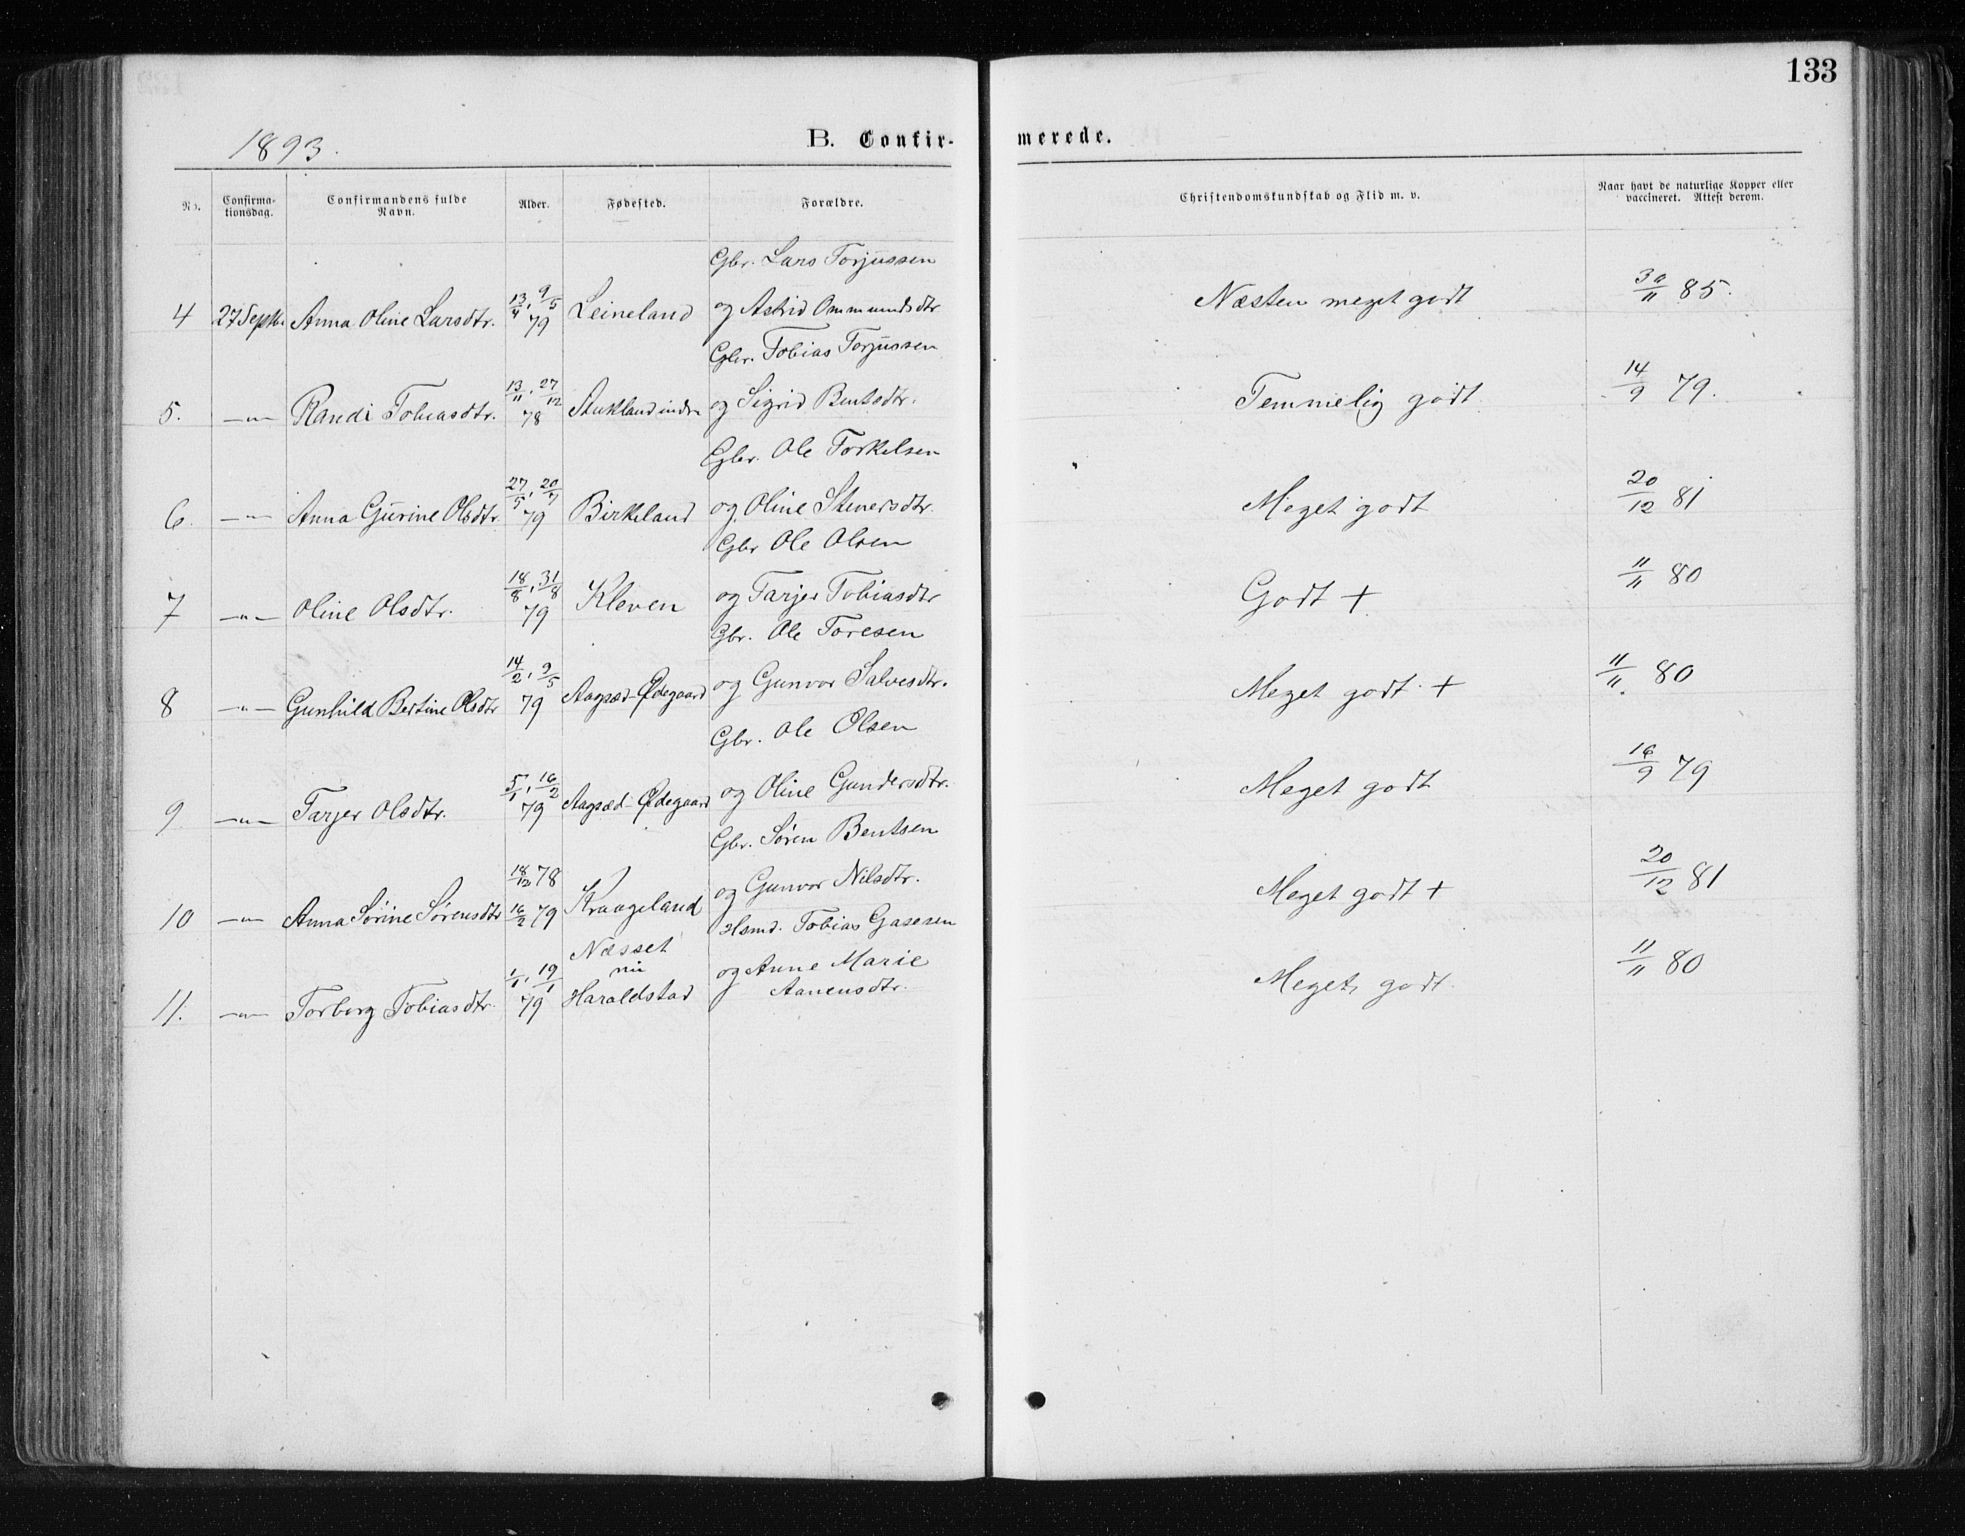 133
1893.
B. Confirmerede.
No. Confirmationsdag. Confirmandens fulde Navn. Alder. Fødested. Forældre. Christendomskundskab og Flid m. v. Naar havt de naturlige Kopper eller vaccineret. Attest derom.
Gbr. Lars Torjussen
4 27 Septbr Anna Oline Larsdtr. 13/4, 9/5 79 Leineland og Astrid Ommundsdtr Næsten meget godt 30/11 85.
Gbr. Tobias Torjussen
5. —"— Randi Tobiasdtr. 13/11, 27/12 78 indre og Sigrid Bentsdtr. Temmelig godt 14/9 79.
Gbr. Ole Torkelsen
6. —"— Anna Gurine Olsdtr. 27/5, 20/7 79 Birkeland og Oline Stenersdtr. Meget godt 20/12 81
Gbr Ole Olsen
7 —"— Oline Olsdtr. 18/8, 31/8 79 Kleven og Tarjer Tobiasdtr Godt + 11/11 80
Gbr. Ole Toresen
8 —"— Gunhild Bertine Olsdtr 14/2, 2/5 79 Aagsæd-Ødegaard og Gunvor Salvesdtr. Meget godt + 11/11 80
Gbr. Ole Olsen
9 —"— Tarjer Olsdtr. 5/1, 16/2 79 Aagsæd-Ødegaard og Oline Gundersdtr. Meget godt 16/9 79
Gbr. Søren Bentsen
10 —"— Anna Sørine Sørensdtr 18/12 78 16/2 79 Kraageland og Gunvor Nilsdtr. Meget godt + 20/12 81
Hsmd. Tobias Gasesen
11. —"— Torborg Tobiasdtr. 1/1, 19/1 79 Næsset nu Haraldstad og Anne Marie Aanensdtr. Meget godt. 11/11 80